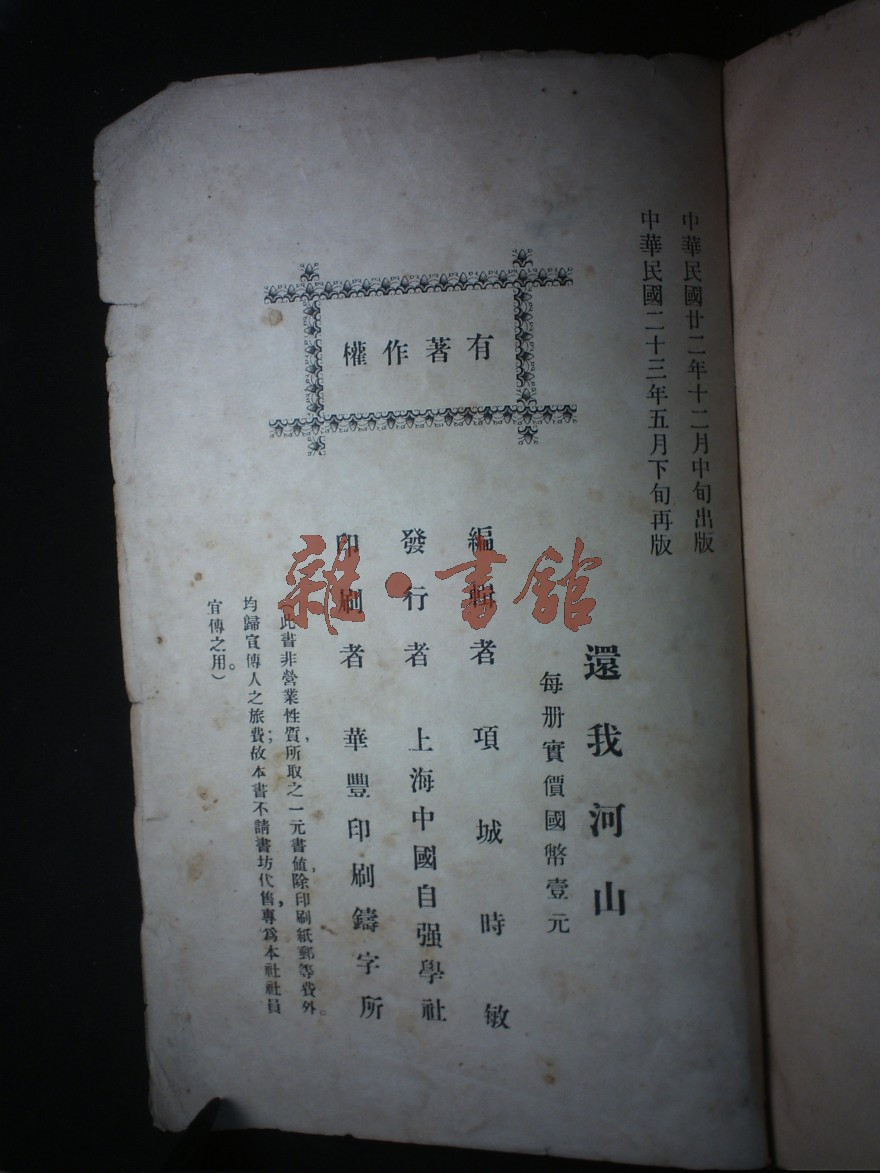 中華民國廿二年十二月中旬出版
中華民國二十三年五月下旬再版
有著作權
還我河山
每册實價國幣壹元
編輯者 項城時敏
發行者 上海中國自强學社
印刷者 華豐印刷鑄字所
（此書非營業性質，所取之一元書值，除印刷紙郵等費外。
均歸宣傳人之旅費；故本書不請書坊代售，專爲本社社員
宣傳之用。）
雜·書館